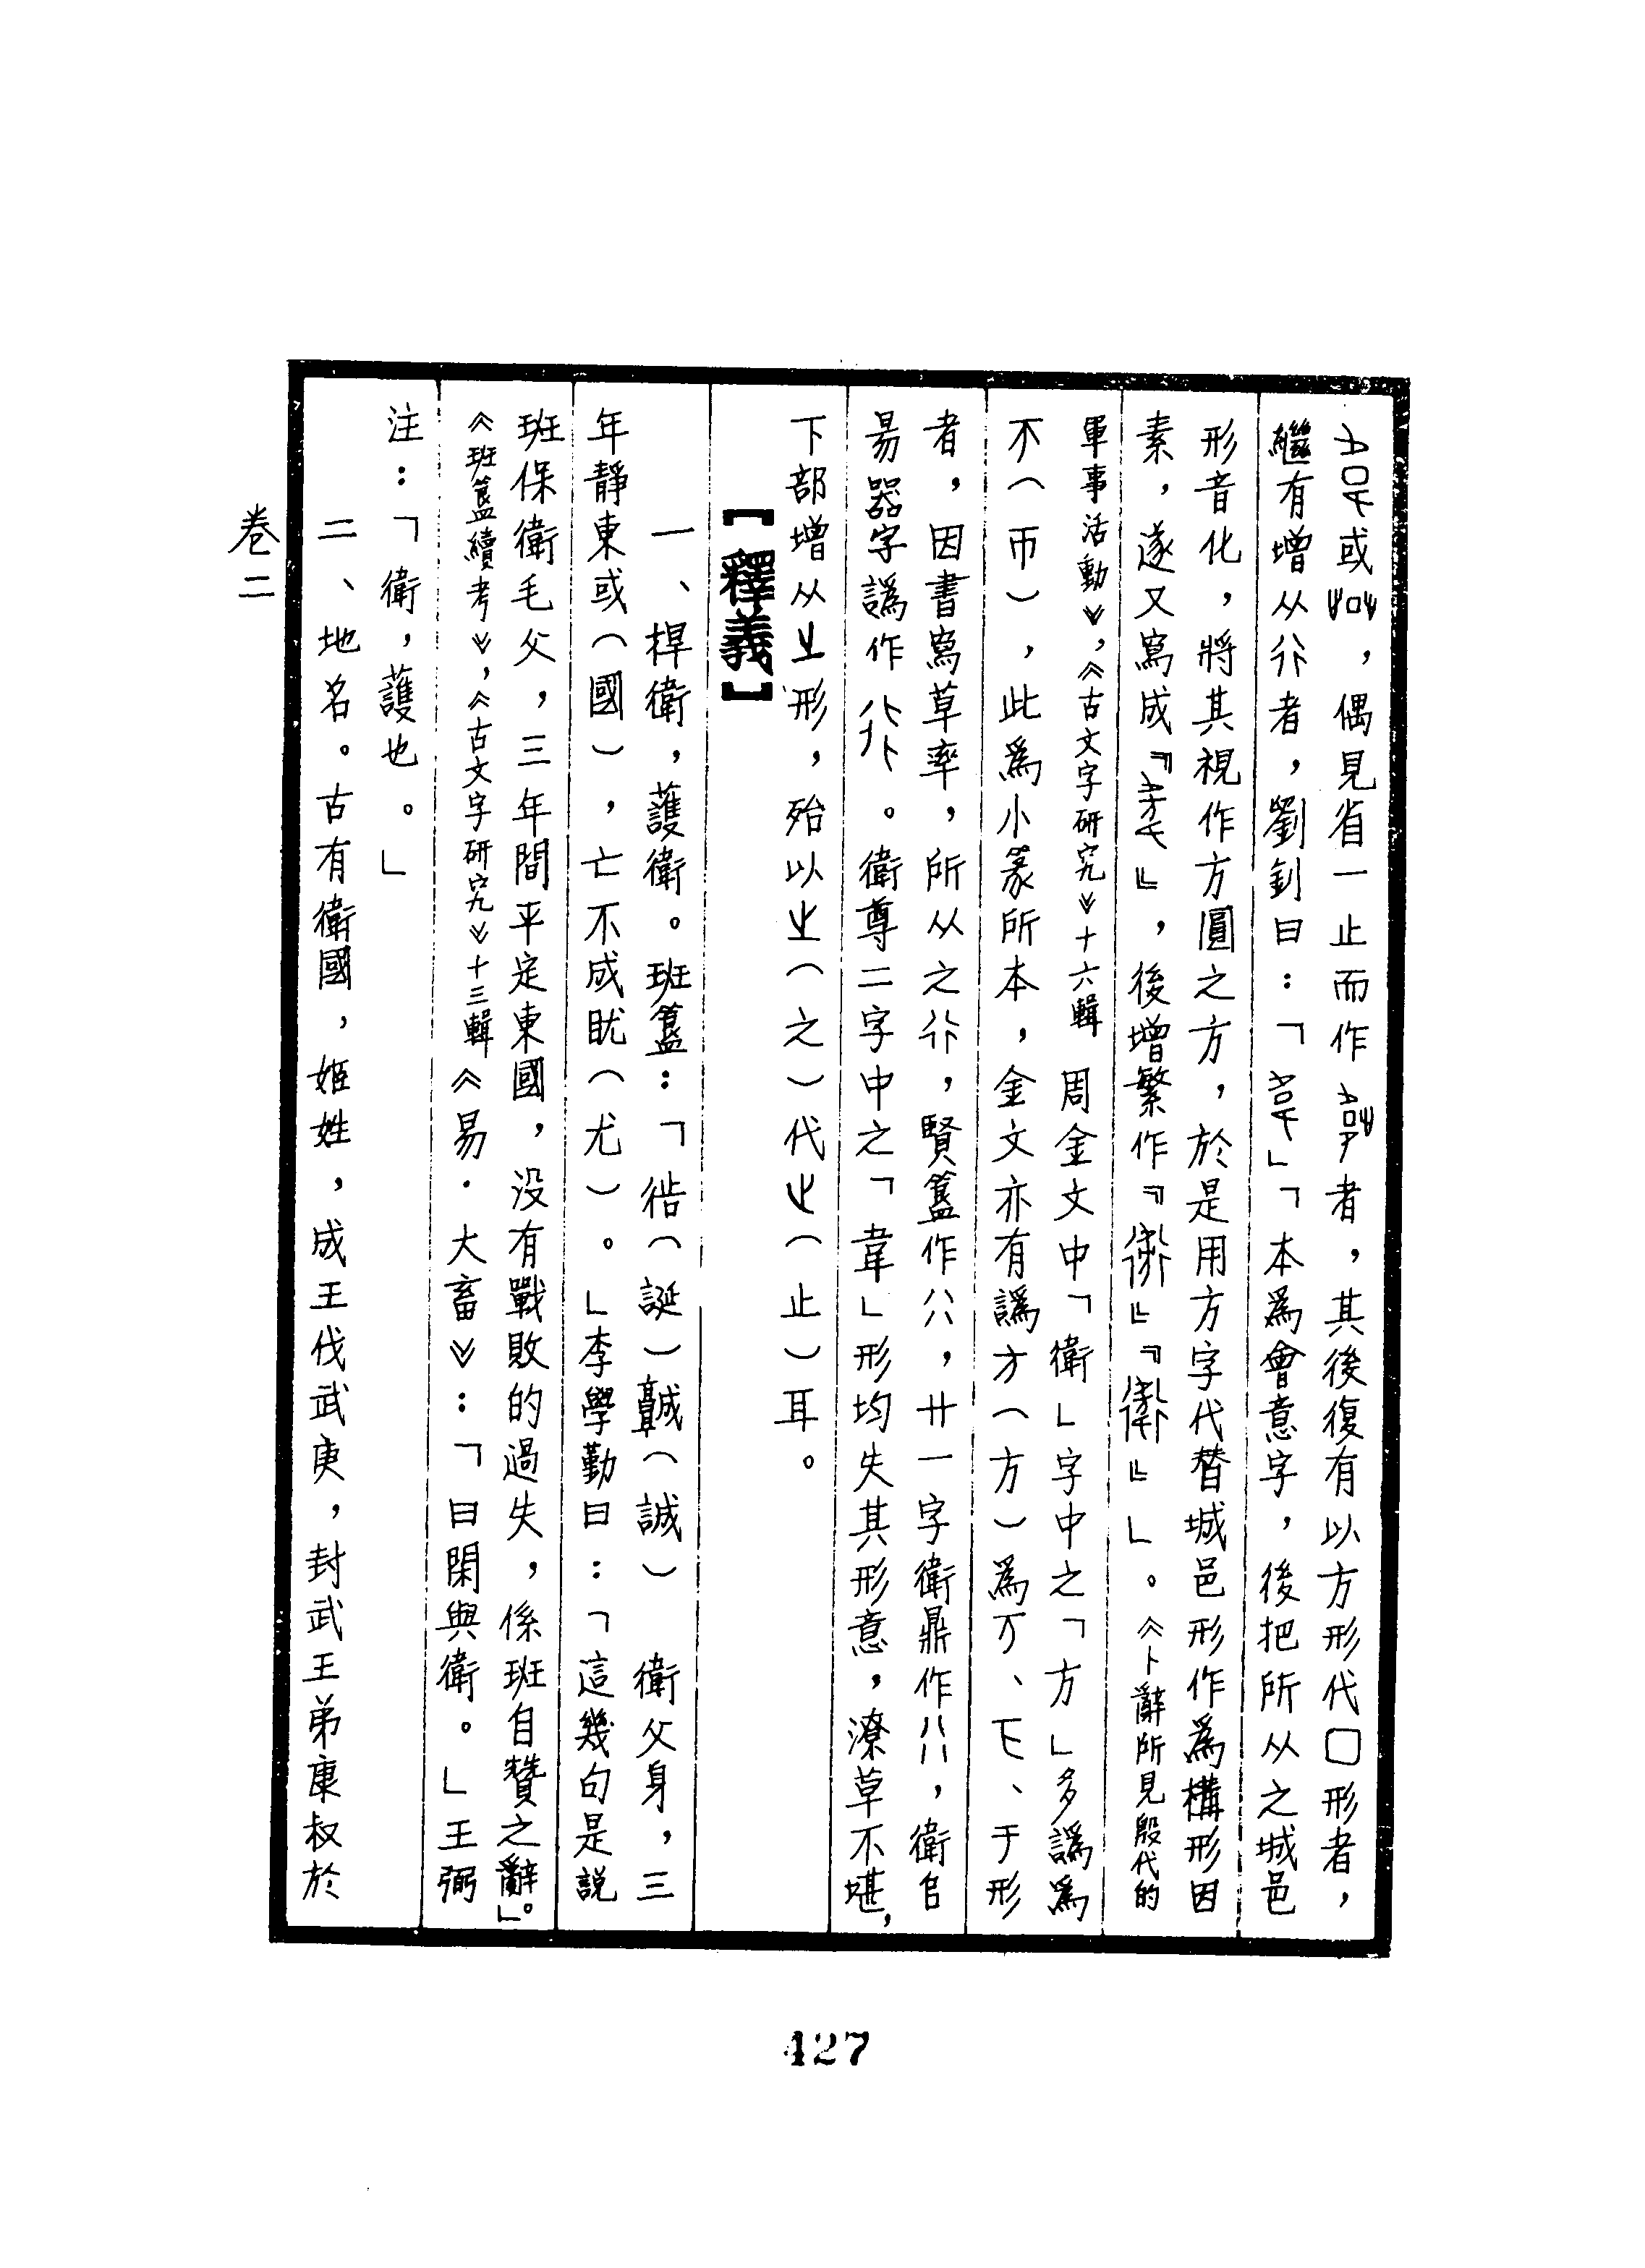 或，偶見省一止而作者，其後復有以方形代囗形者，
繼有增从行者，劉釗曰：「」「本為會意字，後把所从之城邑
形音化，將其視作方圓之方，於是用方字代替城邑形作為構形因
素，遂又寫成『』，後增繁作『』『』」。《卜辭所見殷代的
軍事活動》，《古文字研究》十六輯 周金文中「衛」字中之「方」多譌為
不（帀），此為小篆所本，金文亦有譌方（方）為丂、于形
者，因書寫草率，所从之行，賢簋作，廿一字衛鼎作，衛𠂤
昜器字譌作。衛尊二字中之「韋」形均失其形意，潦草不堪，
下部增从形，殆以（之）代（止）耳。
【釋義】
一、捍衛，護衛。班簋：「𢓊（誕）（誠） 衛父身，三
年靜東或（國），亡不成眈（尤）。」李學勤曰：「這幾句是説
班保衛毛父，三年間平定東國，没有戰敗的過失，係班自贊之辭」。
《班簋續考》，《古文字研究》十三輯《易·大畜》：「曰閑與衛。」王弼
注：「衛，護也。」
二、地名。古有衛國，姬姓，成王伐武庚，封武王弟康叔於
卷二
427